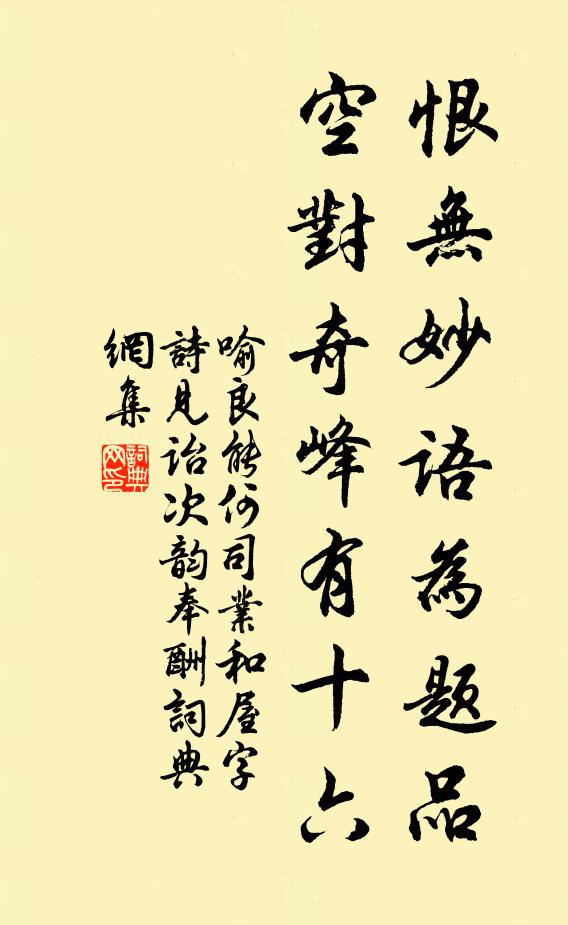 恨無妙語為題品
空對奇峰有十六
喻良能何司業和屋字
詩見詒次韵奉酬詞典
網集
詞典網印